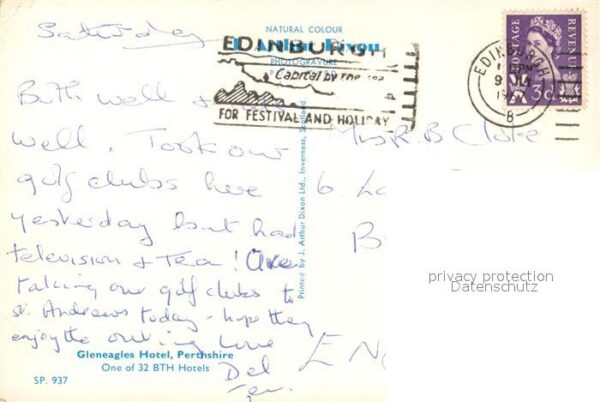 Saturday
NATURAL COLOUR
J. Arthur Dixon
PHOTOGRAVURE
EDINBURGH
Capital by the sea
FOR FESTIVAL AND HOLIDAY
EDINBURGH
9
19
B
POSTAGE
REVENUE
3d
Both well &
well. Took our
golf clubs here
yesterday but had
television & Tea! Are
taking our golf clubs to
St. Andrews today - hope they
enjoy the outing Love
Mrs R. B
6
privacy protection
Datenschutz
Printed by J. Arthur Dixon Ltd., Inverness, Scotland
Gleneagles Hotel, Perthshire
One of 32 BTH Hotels
SP. 937